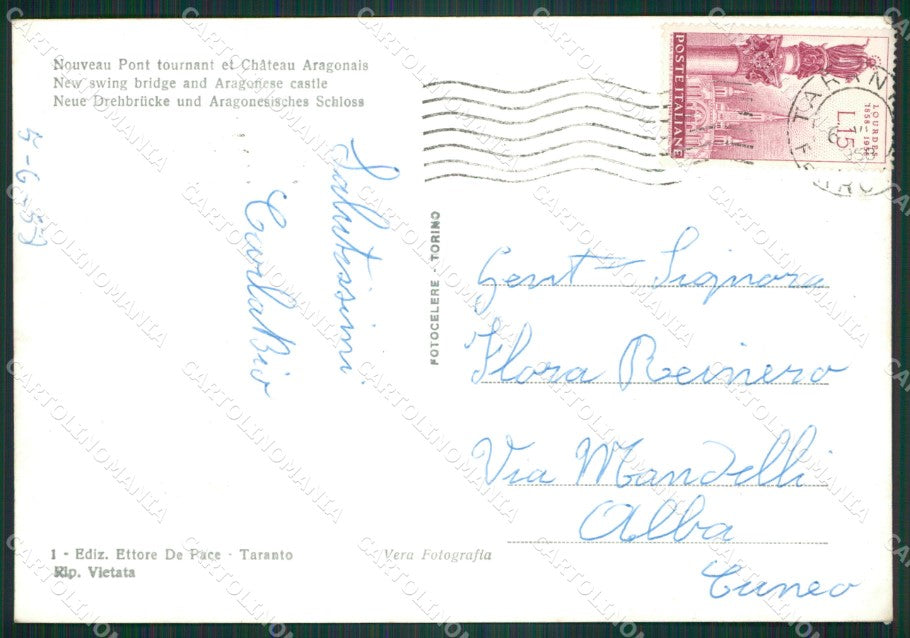 Nouveau Pont tournant et Château Aragonais
New swing bridge and Aragonese castle
Neue Drehbrücke und Aragonesisches Schloss
POSTE ITALIANE
LOURDES
1858-1958
L.15
TARANTO
FERRO
Salutissimi
Carla Bio
FOTOCELERE - TORINO
Gent Signora
Flora Reinero
Via Mandelli
Alba
Cuneo
1 - Ediz. Ettore De Pace - Taranto
Rip. Vietata
Vera Fotografia
CARTOLINOMANIA